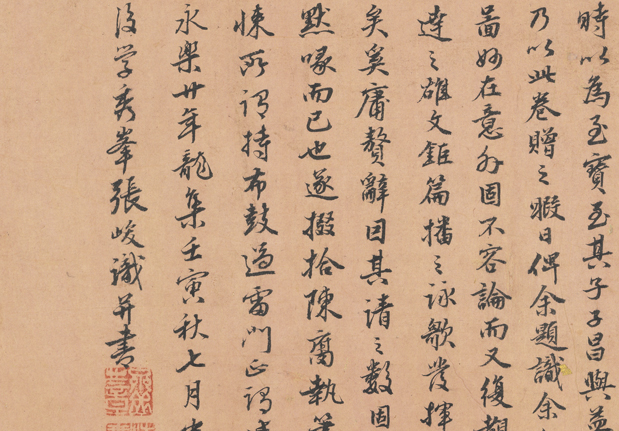 時以為至寶至其子子昌與葢
乃以此卷贈之暇日俾余題識余
啚妙在意外固不容論而又復覩
達之雄文鉅篇播之詠歌發揮
矣奚庸贅辭因其請之數固
默喙而已也遂掇拾陳腐執筆
悚所谓持布鼓過雷门止谓
永樂廿年龍集壬寅秋七月
後学秀峯張峻識并書